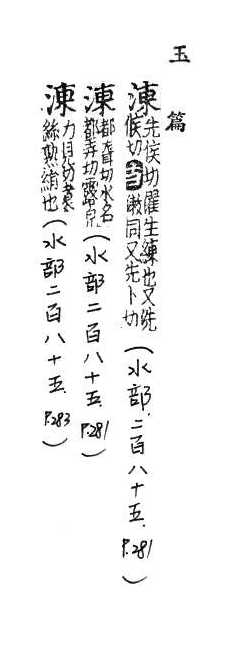 玉篇
涑先侯切濯生練也又先侯切與漱同又先卜切(水部二百八十五.P.281)
涷都聾切水名都弄切露皃(水部二百八十五.P.281)
湅力見切煮絲熟絹也(水部二百八十五.P.283)